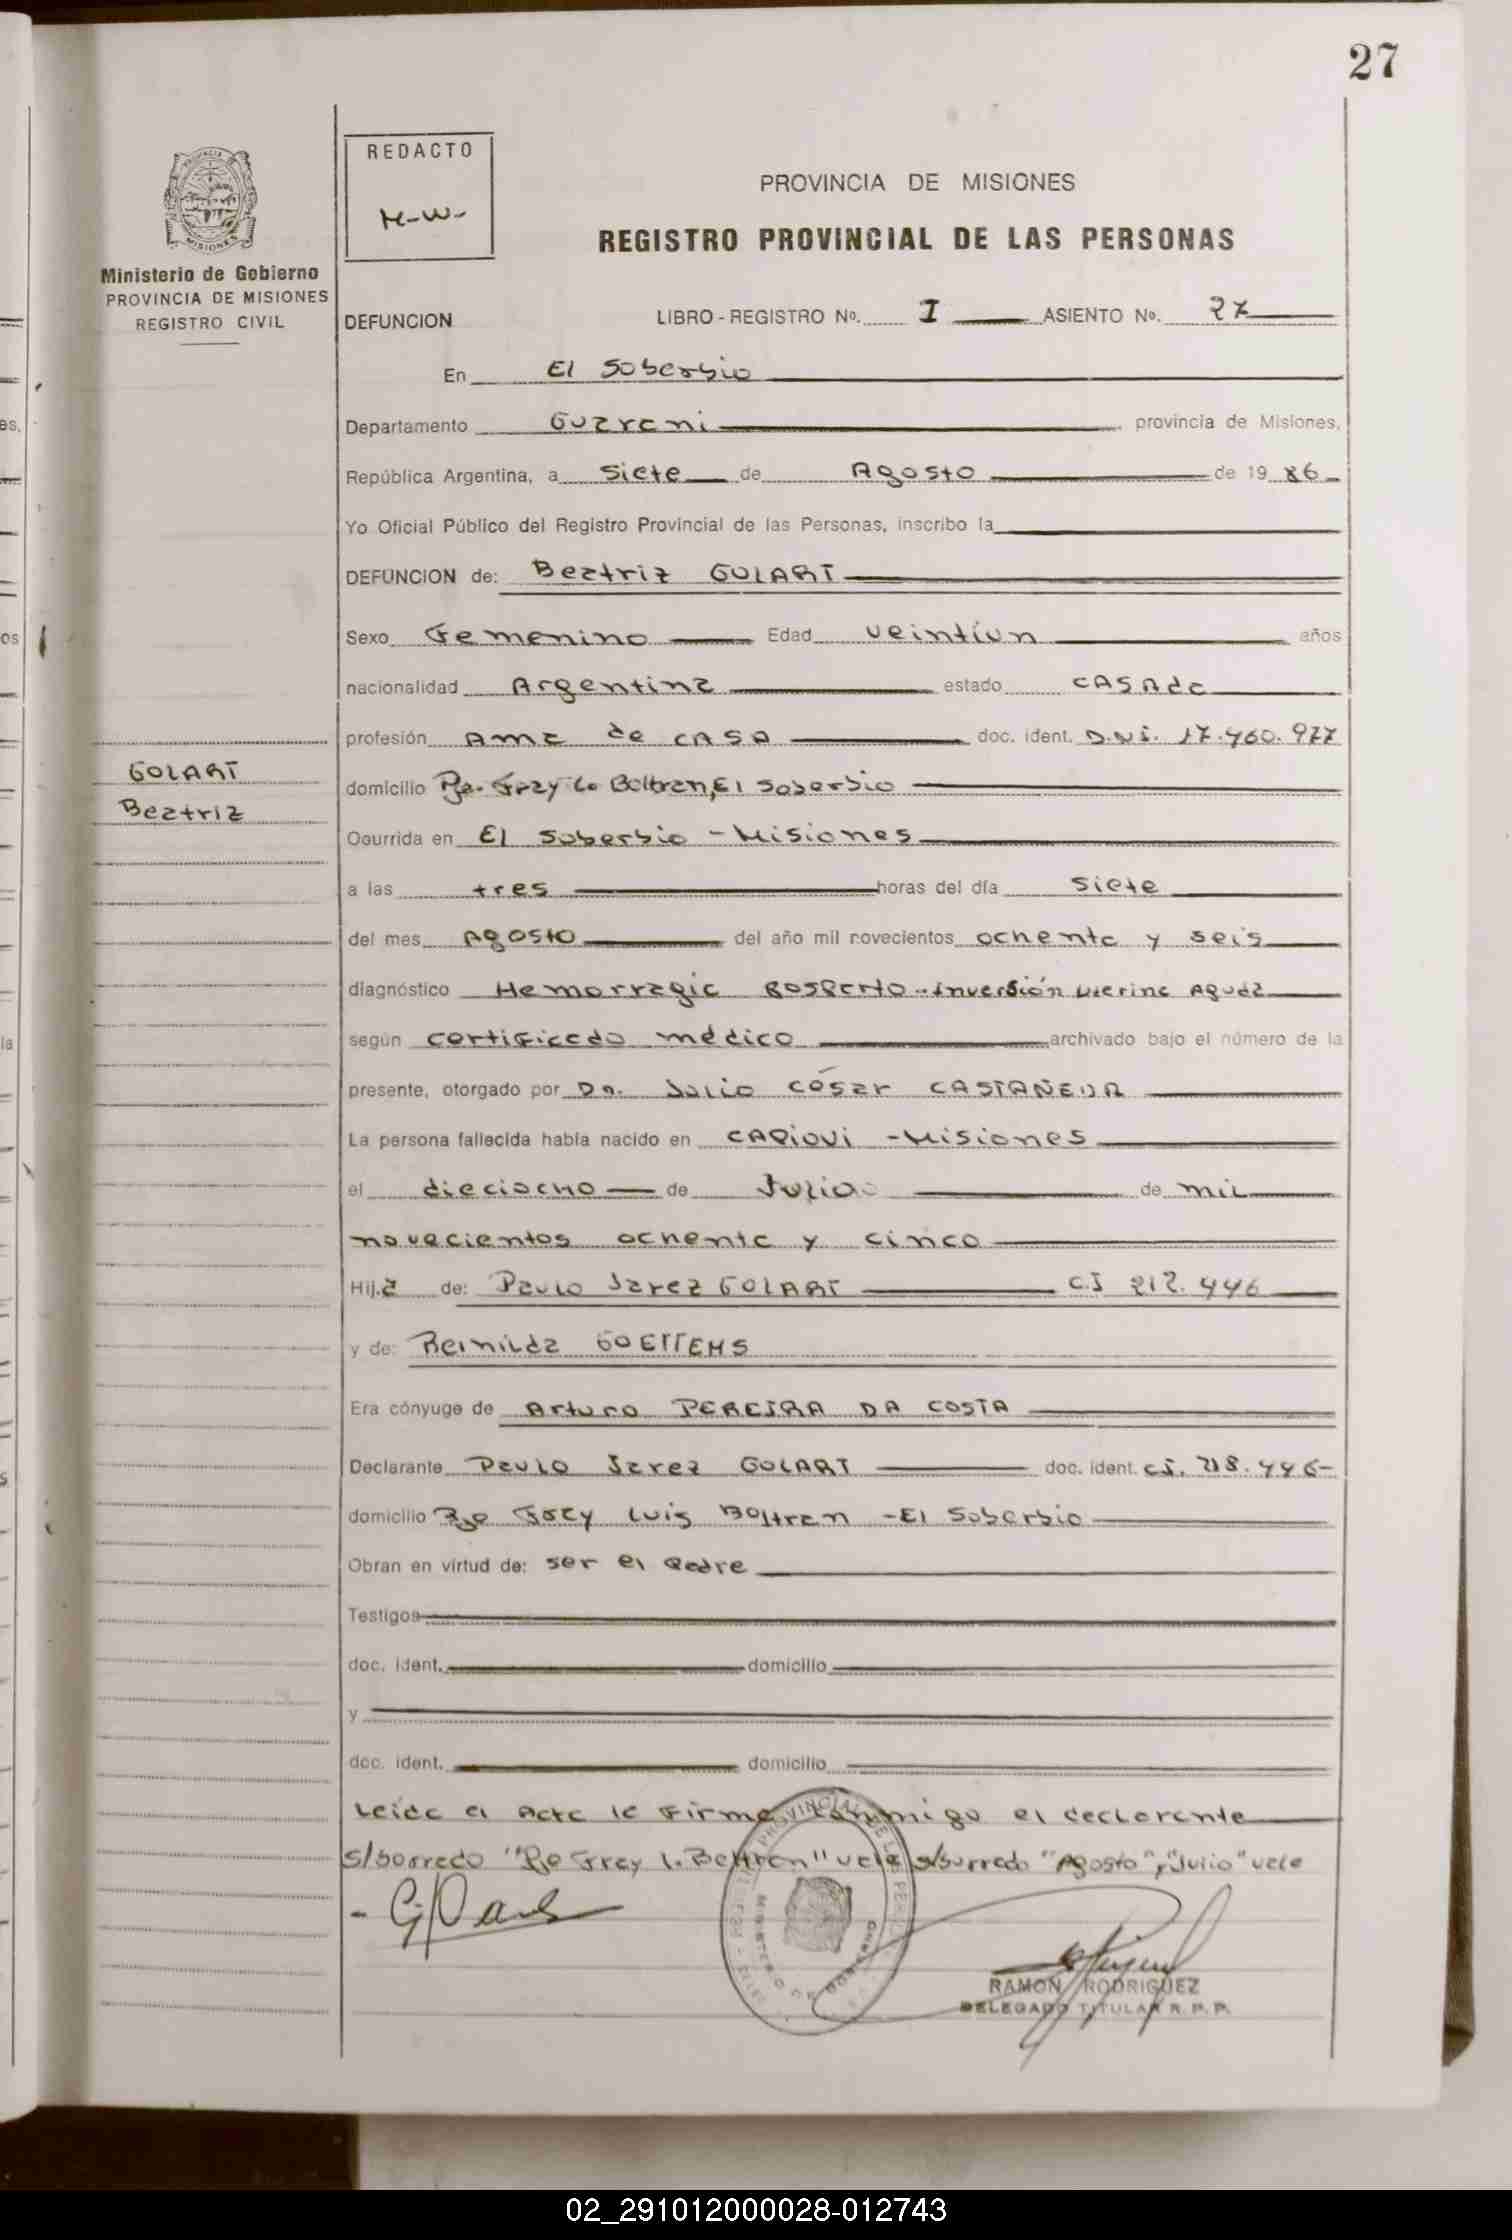 27
REDACTO
H-W-
PROVINCIA DE MISIONES
REGISTRO PROVINCIAL DE LAS PERSONAS
PROVINCIA DE
MISIONES
Ministerio de Gobierno
PROVINCIA DE MISIONES
REGISTRO CIVIL
DEFUNCION LIBRO - REGISTRO No. I ASIENTO No. 27
En El Soberbio
Departamento Guarani provincia de Misiones,
República Argentina, a siete de Agosto de 19 86
Yo Oficial Público del Registro Provincial de las Personas, inscribo la
DEFUNCION de: Beatriz GOLART
Sexo Femenino Edad veintiun años
nacionalidad Argentina estado CASAda
profesión Ama de CASA doc. ident. D.N.i. 17.460.977
GOLART
Beatriz
domicilio Pje. Fray L. Beltran, El Soberbio
Ocurrida en El Soberbio - Misiones
a las tres horas del día siete
del mes Agosto del año mil novecientos ochenta y seis
diagnóstico Hemorragia Posparto - Inversión Uterina Aguda
según certificado médico archivado bajo el número de la
presente, otorgado por Dn. Julio César CASTAÑEDA
La persona fallecida había nacido en CAPiOVi - Misiones
el dieciocho de Julio de mil
novecientos ochenta y cinco
Hij.a de: Paulo Jarez GOLART C.I 212.446
y de: Reinilda GOETTEMS
Era cónyuge de Arturo PEREIRA DA COSTA
Declarante Paulo Jarez GOLART doc. ident. C.I. 218.446-
domicilio Pje Fray Luis Beltran - El Soberbio
Obran en virtud de: ser el padre
Testigos
doc. ident. domicilio
y
doc. ident. domicilio
Leida el Acta la Firma conmigo el declarante
s/borrado "Pje Fray L. Beltran" vale s/borrado "Agosto" y "Julio" vale
RAMON RODRIGUEZ
DELEGADO TITULAR R. P. P.
02_291012000028-012743